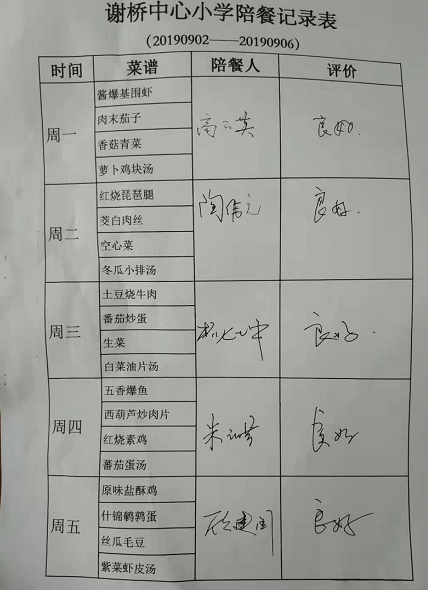 谢桥中心小学陪餐记录表
(20190902——20190906)
时间 菜谱 陪餐人 评价
周一
酱爆基围虾
肉末茄子
香菇青菜
萝卜鸡块汤
良好.
周二
红烧琵琶腿
茭白肉丝
空心菜
冬瓜小排汤
良好.
周三
土豆烧牛肉
番茄炒蛋
生菜
白菜油片汤
良好.
周四
五香爆鱼
西葫芦炒肉片
红烧素鸡
蕃茄蛋汤
良好
周五
原味盐酥鸡
什锦鹌鹑蛋
丝瓜毛豆
紫菜虾皮汤
良好